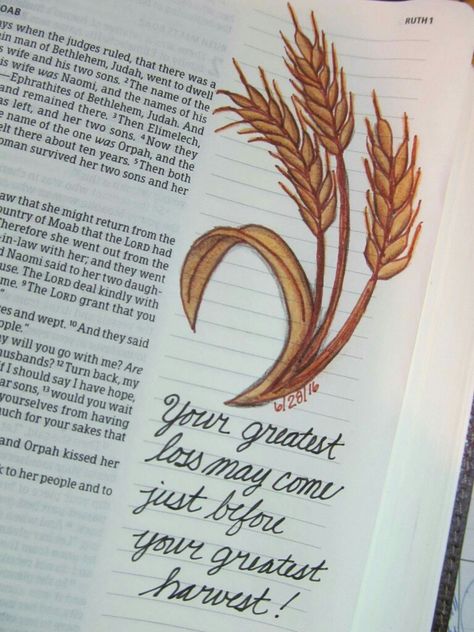 OAB
RUTH 1
ys when the judges ruled, that there was a
in man of Bethlehem, Judah, went to dwell
s wife and his two sons. ²The name of the
is wife was Naomi, and the names of his
—Ephrathites of Bethlehem, Judah. And
and remained there. ³Then Elimelech,
as left, and her two sons. ⁴Now they
e name of the one was Orpah, and the
elt there about ten years. ⁵Then both
oman survived her two sons and her
aw that she might return from the
ountry of Moab that the LORD had
Therefore she went out from the
-in-law with her; and they went
d Naomi said to her two daugh-
use. The LORD deal kindly with
me. ⁹The LORD grant that you
”
es and wept. ¹⁰And they said
ople.”
y will you go with me? Are
husbands? ¹²Turn back, my
f I should say I have hope,
ar sons, ¹³would you wait
yourselves from having
uch for your sakes that
and Orpah kissed her
k to her people and to
6/28/16
Your greatest
loss may come
just before
your greatest
harvest!